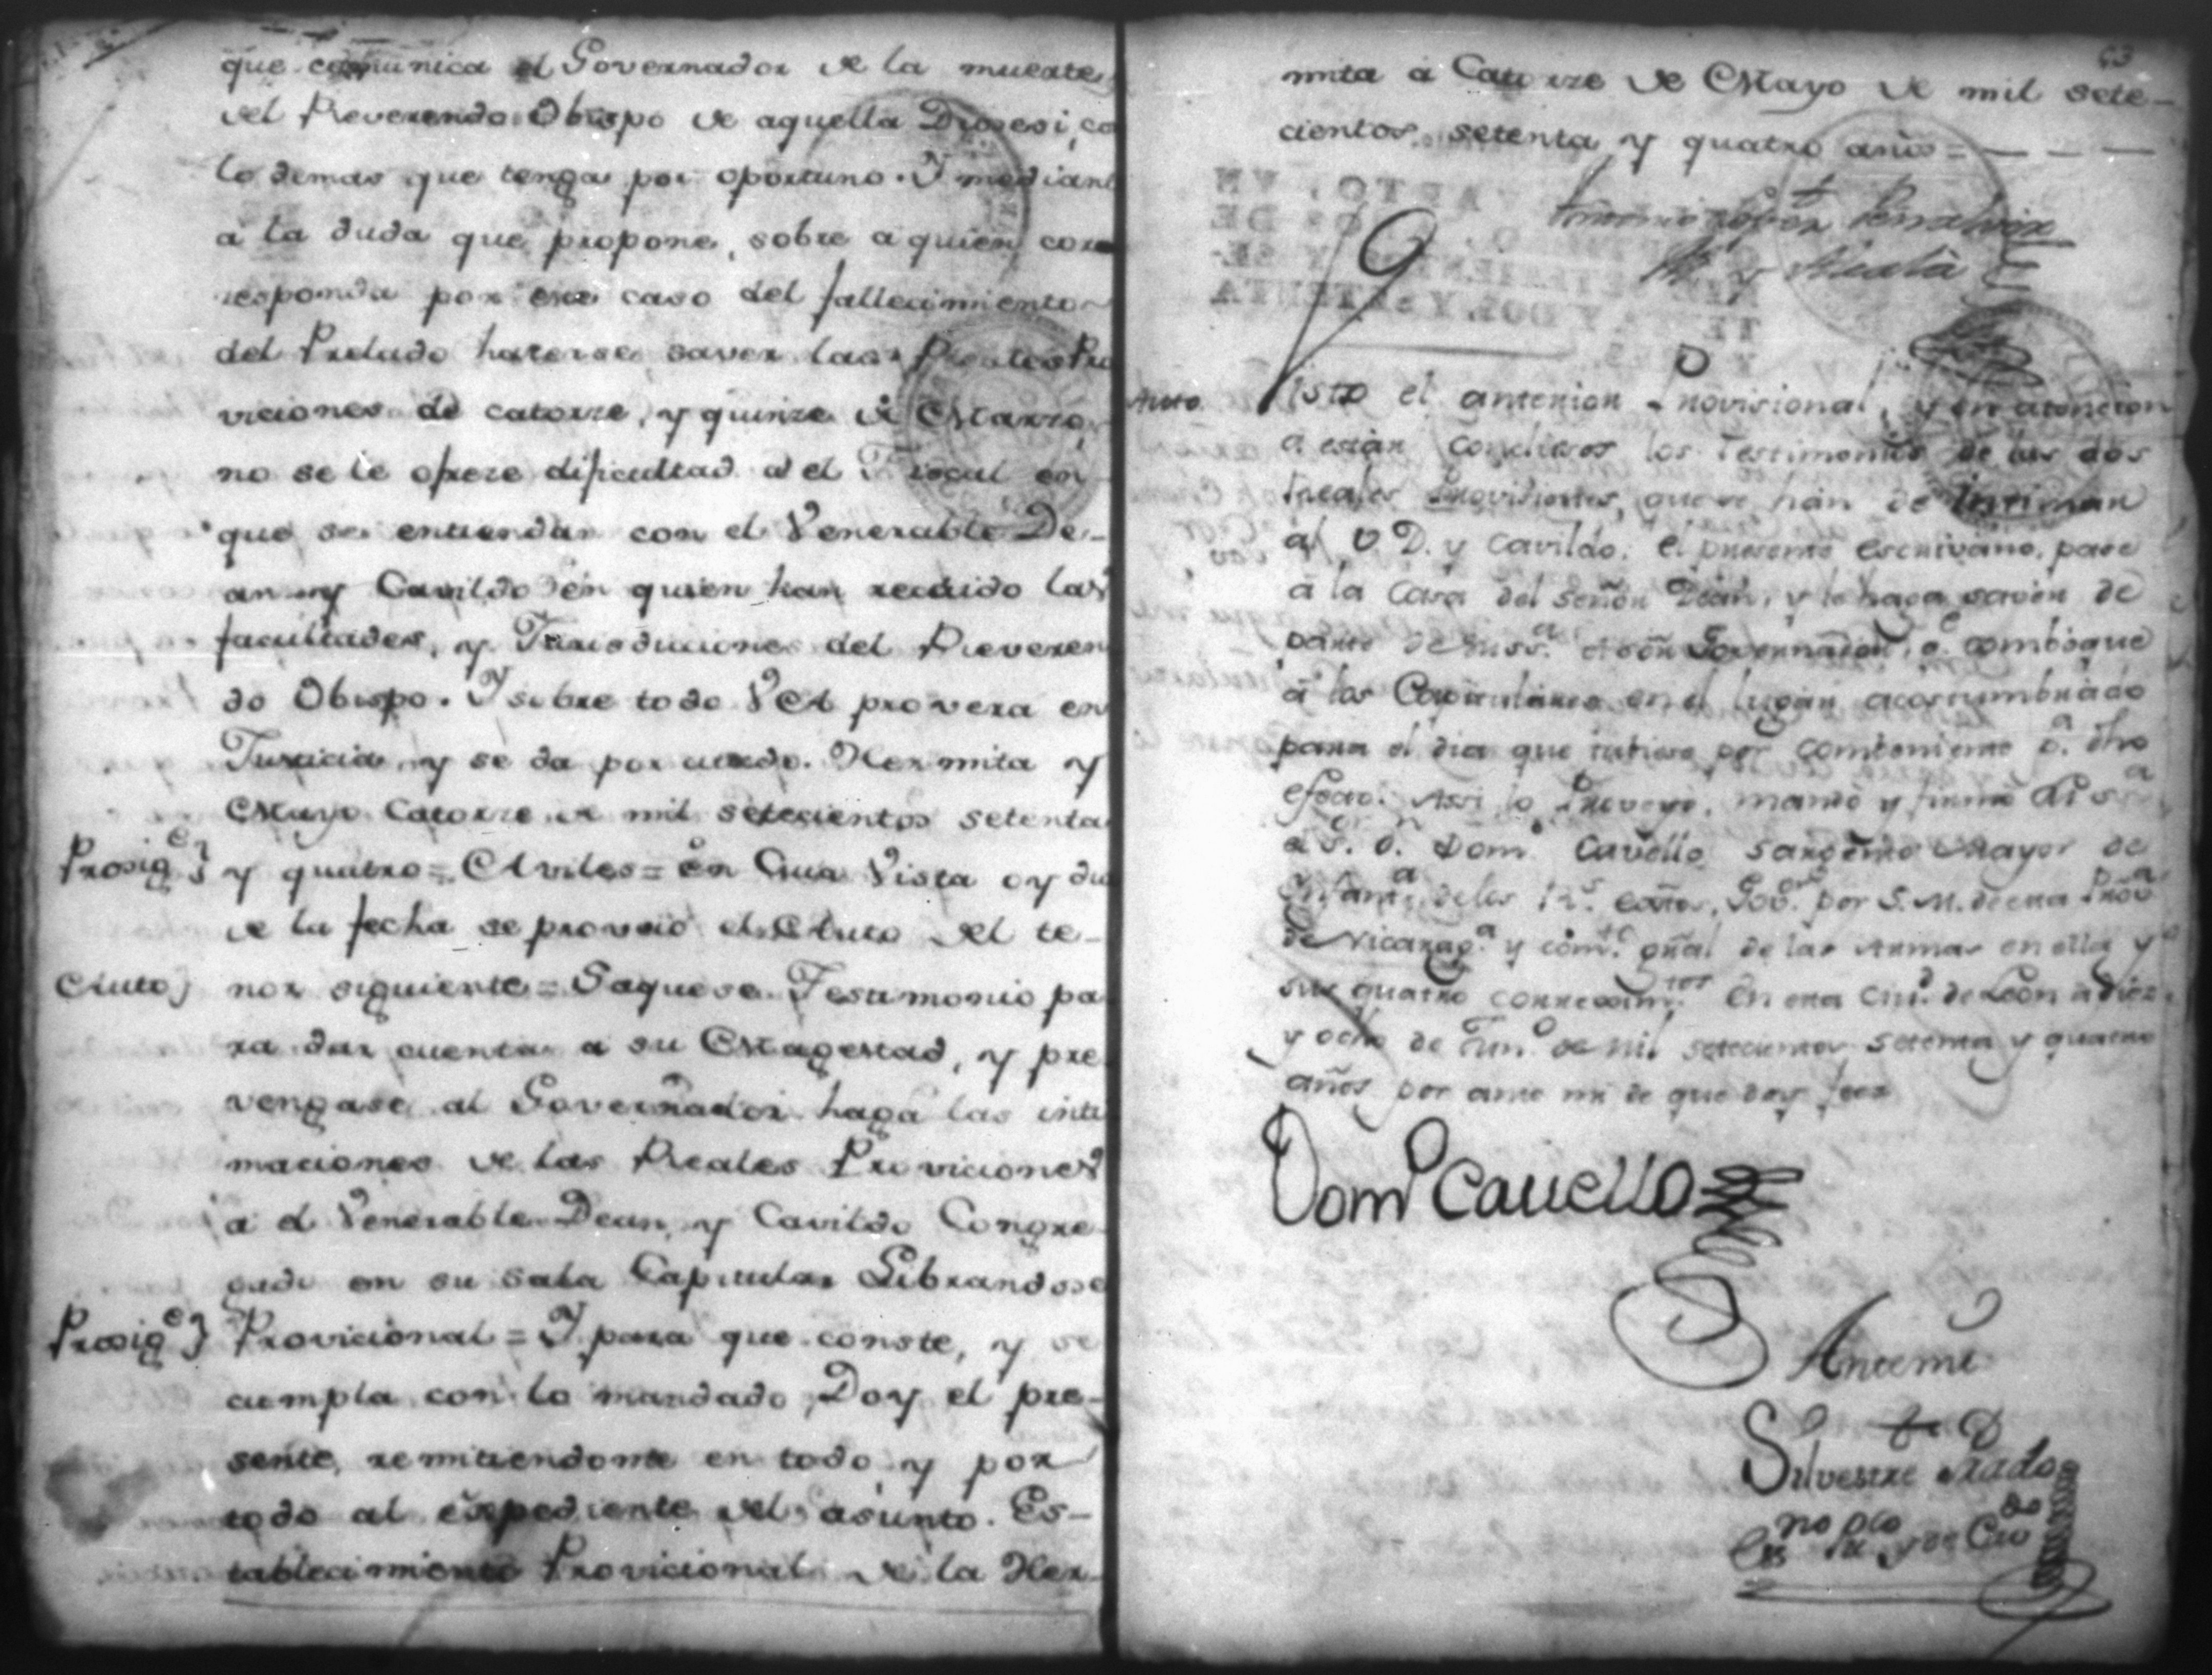 que comunica el Governador de la muerte
del Reverendo Obispo de aquella Diocesi, co
lo demas que tenga por oportuno. Y mediant
á la duda que propone, sobre a quien cor
responda por ese caso del fallecimiento
del Prelado hacerse saver las Reales Pro
viciones de catorze, y quinze de Marzo,
no se le ofreze dificultad á el Fiscal en
que se entiendan con el Venerable De-
an y Cavildo en quien han recaido las
facultades, y Jurisdiciones del Reveren
do Obispo. Y sobre todo VA provera en
Justicia, y se da por citado. Hermita y
Mayo Catorze de mil setecientos setenta
Prosig.e} y quatro = Aviles = en Cuia Vista oy dia
de la fecha se proveió el Auto del te-
Auto} nor siguiente = Saquese Testimonio pa
ra dar cuenta a su Magestad, y pre
vengase al Governador haga las inti
maciones de las Reales Proviciones
á el Venerable Dean, y Cavildo Congre
gado en su sala Capitular Librandose
Prosig.e} Provicional = Y para que conste, y se
cumpla con lo mandado, Doy el pre-
sente, remitiendome en todo, y por
todo al expediente del asunto. Es-
tablecimiento Provicional de la Her-
63
mita á Catorze de Mayo de mil sete-
cientos, setenta y quatro años = — — —
Antonio López Peñalver
y Alcalá
Auto. Visto el anterior Provisional, y en atencion
a estar conclusos los Testimonios de las dos
Reales Provisiones, que se han de Intimar
al V. D. y Cavildo, el presente escrivano, pase
á la Casa del Señor Dean, y le haga saver de
parte de su S.a el Señ. Governador, q.e comboque
á los Capitulares en el lugar acostumbrado
para el dia que tubiere por combeniente p.a dho
efecto. Assi lo Proveyo, mandó y firmó el S.
D.n Dom.o Cavello Sargento Mayor de
Infant.a de los R.s extos, Gov.or por S. M. de esta Prov.a
de Nicarag.a y com.te gñal de las Armas en ella y
sus quatro correxim.tos En esta Ciu.d de Leon á diez
y ocho de Jun.o de Mil setecientos setenta y quatro
años por ante mi de que doy fee =
Dom.o Cavello
Ante mi
Silvestre Prado
Es.no p.co y de Cav.do